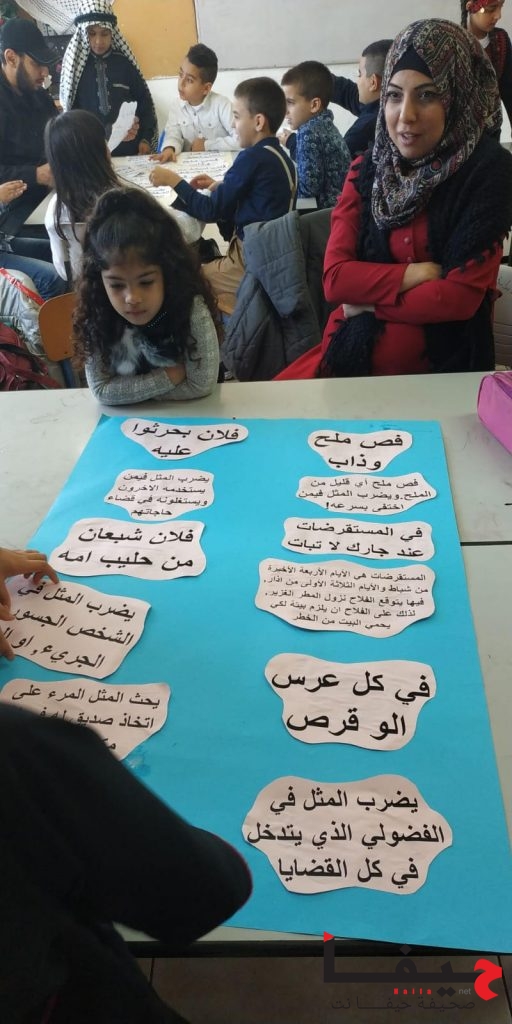 فص ملح
وذاب
فص ملح أي قليل من
الملح.ويضرب المثل فيمن
اختفى بسرعه!
في المستقرضات
عند جارك لا تبات
المستقرضات هي الأيام الأربعة الأخيرة
من شباط والأيام الثلاثة الأولى من آذار,
فيها يتوقع الفلاح نزول المطر الغزير,
لذلك على الفلاح ان يلزم بيته لكي
يحمي البيت من الخطر
في كل عرس
الو قرص
يضرب المثل في
الفضولي الذي يتدخل
في كل القضايا
فلان بحرثوا
عليه
يضرب المثل فيمن
يستخدمه الآخرون
ويستغلونه في قضاء
حاجاتهم
فلان شبعان
من حليب امه
يضرب المثل في
الشخص الجسور
الجريء, او
يحث المثل المرء على
اتخاذ صديق له
حيفا
Haifa.net
صحيفة حيفا نت